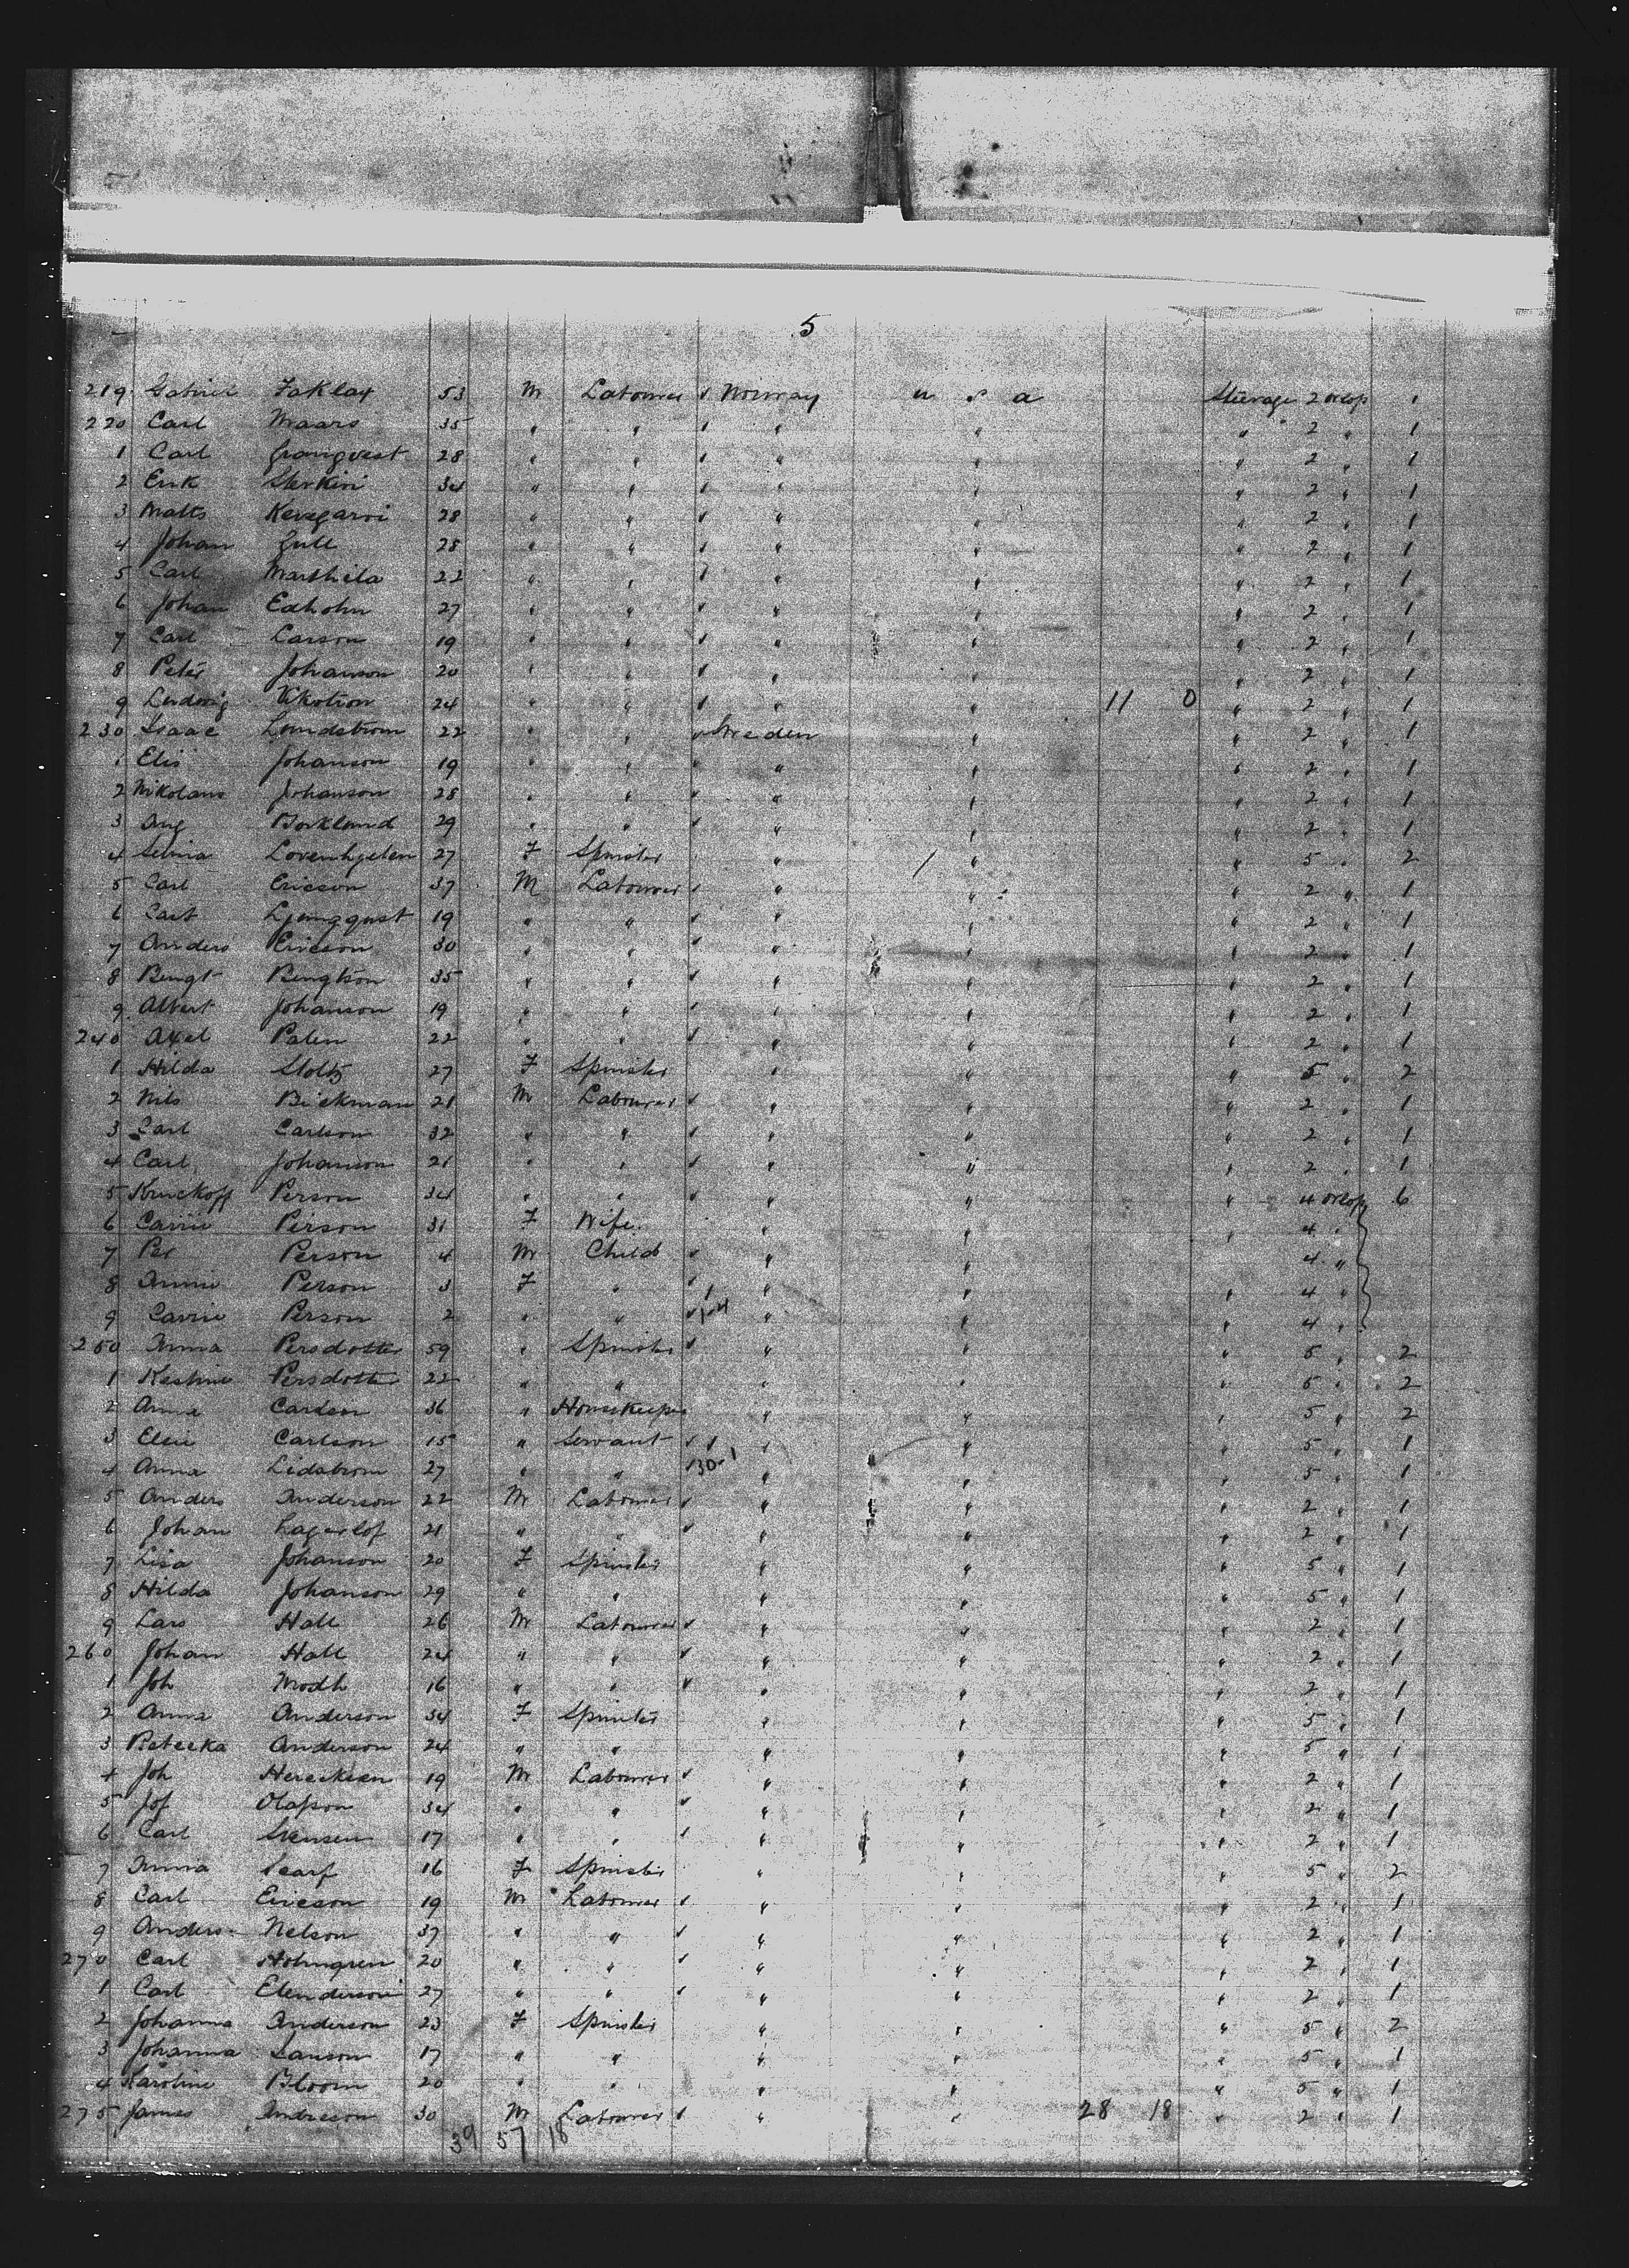 5
219 Gabriel Jaklax 53 M Labourer Norway U S A Steerage 2 orlop 1
220 Carl Maars 35 " " " " " 2 " 1
1 Carl Granqvest 28 " " " " " 2 " 1
2 Erik 34 " " " " " 2 " 1
3 Matts Kevegarvi 28 " " " " " 2 " 1
4 Johan Gull 28 " " " " " 2 " 1
5 Carl Marthila 22 " " " " " 2 " 1
6 Johan Edholm 27 " " " " " 2 " 1
7 Carl Carson 19 " " " " " 2 " 1
8 Peter Johanson 20 " " " " " 2 " 1
9 Ludwig 24 " " " " 11 0 " 2 " 1
230 Isaac Lundstrom 22 " " Sweden " " 2 " 1
1 Elis Johanson 19 " " " " " 2 " 1
2 Nikolaus Johanson 28 " " " " " 2 " 1
3 Aug Borklund 29 " " " " " 2 " 1
4 Selma Lovenhjelen 27 F Spinster " " " 5 " 2
5 Carl Ericson 37 M Labourer " " " 2 " 1
6 Carl Ljungqust 19 " " " " " 2 " 1
7 Anders Ericson 30 " " " " " 2 " 1
8 Bengt Bengtson 35 " " " " " 2 " 1
9 Albert Johanson 19 " " " " " 2 " 1
240 Axel Palen 22 " " " " " 2 " 1
1 Hilda Stoltz 27 F Spinster " " " 5 " 2
2 Nils Bickman 21 M Labourer " " " 2 " 1
3 Carl Carlson 32 " " " " " 2 " 1
4 Carl Johanson 21 " " " " " 2 " 1
5 Person 34 " " " " " 4 orlop 6
6 Carrie Person 31 F Wife " " " 4 "
7 Per Person 4 M Child " " " 4 "
8 Annie Person 3 F " " " " 4 "
9 Carrie Person 2 " " " " " 4 "
250 Anna Persdotter 59 " Spinster " " " 5 " 2
1 Persdotter 22 " " " " " 5 " 2
2 Anna Carlson 36 " Housekeeper " " " 5 " 2
3 Elsie Carlson 15 " Servant " " " 5 " 1
4 Anna Lidstrom 27 " " 130-1 " " " 5 " 1
5 Anders Anderson 22 M Labourer " " " 2 " 1
6 Johan Lagerlof 21 " " " " " 2 " 1
7 Lisa Johanson 20 F Spinster " " " 5 " 1
8 Hilda Johanson 29 " " " " " 5 " 1
9 Lars Hall 26 M Labourer " " " 2 " 1
260 Johan Hall 24 " " " " " 2 " 1
1 Joh Modh 16 " " " " " 2 " 1
2 Anna Anderson 34 F Spinster " " " 5 " 1
3 Rebecka Anderson 24 " " " " " 5 " 1
4 Joh 19 M Labourer " " " 2 " 1
5 Jof Olafson 34 " " " " " 2 " 1
6 Carl Svensen 17 " " " " " 2 " 1
7 Anna Scarf 16 F Spinster " " " 5 " 2
8 Carl Ericson 19 M Labourer " " " 2 " 1
9 Anders Nelson 37 " " " " " 2 " 1
270 Carl Holmgren 20 " " " " " 2 " 1
1 Carl Elenderson 27 " " " " " 2 " 1
2 Johanna Anderson 23 F Spinster " " " 5 " 2
3 Johanna Lauson 17 " " " " " 5 " 1
4 Karoline Bloom 20 " " " " " 5 " 1
275 James Andreson 30 M Labourer " " 28 18 " 2 " 1
39 57 18